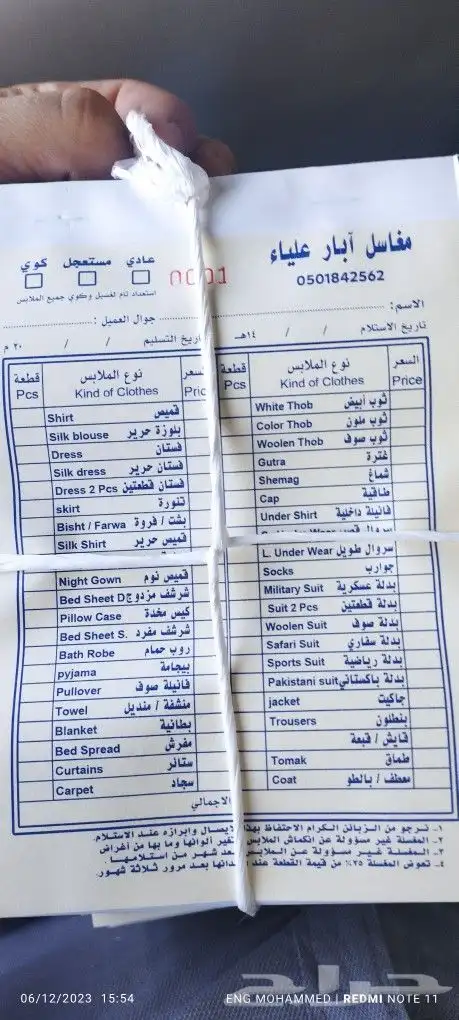 مغاسل آبار علياء
0501842562
عادي مستعجل كوي
استعداد تام لغسيل وكوي جميع الملابس
0001
الاسم:
جوال العميل:
تاريخ الاستلام / / ١٤هـ تاريخ التسليم / / ٢٠ م
السعر Price نوع الملابس Kind of Clothes قطعة Pcs
السعر Price نوع الملابس Kind of Clothes قطعة Pcs
White Thob ثوب أبيض
Color Thob ثوب ملون
Woolen Thob ثوب صوف
Gutra غترة
Shemag شماغ
Cap طاقية
Under Shirt فانيلة داخلية
Under Wear سروال قصير
L. Under Wear سروال طويل
Socks جوارب
Military Suit بدلة عسكرية
Suit 2 Pcs بدلة قطعتين
Woolen Suit بدلة صوف
Safari Suit بدلة سفاري
Sports Suit بدلة رياضية
Pakistani suit بدلة باكستاني
jacket جاكيت
Trousers بنطلون
قايش / قبعة
Tomak طماق
Coat معطف / بالطو
Shirt قميص
Silk blouse بلوزة حرير
Dress فستان
Silk dress فستان حرير
Dress 2 Pcs فستان قطعتين
skirt تنورة
Bisht / Farwa بشت / فروة
Silk Shirt قميص حرير
Night Gown قميص نوم
Bed Sheet D شرشف مزدوج
Pillow Case كيس مخدة
Bed Sheet S. شرشف مفرد
Bath Robe روب حمام
pyjama بيجامة
Pullover فانيلة صوف
Towel منشفة / منديل
Blanket بطانية
Bed Spread مفرش
Curtains ستائر
Carpet سجاد
الاجمالي
١- نرجو من الزبائن الكرام الاحتفاظ بهذا الايصال وابرازه عند الاستلام.
٢- المغسلة غير مسؤولة عن انكماش الملابس تغير ألوانها وما بها من أغراض
٣- المغسلة غير مسؤولة عن الملابس بعد شهر من استلامها.
٤- تعوض المغسلة ٢٥٪ من قيمة القطعة عند بعد مرور ثلاثة شهور.
حراج
06/12/2023 15:54
ENG MOHAMMED | REDMI NOTE 11